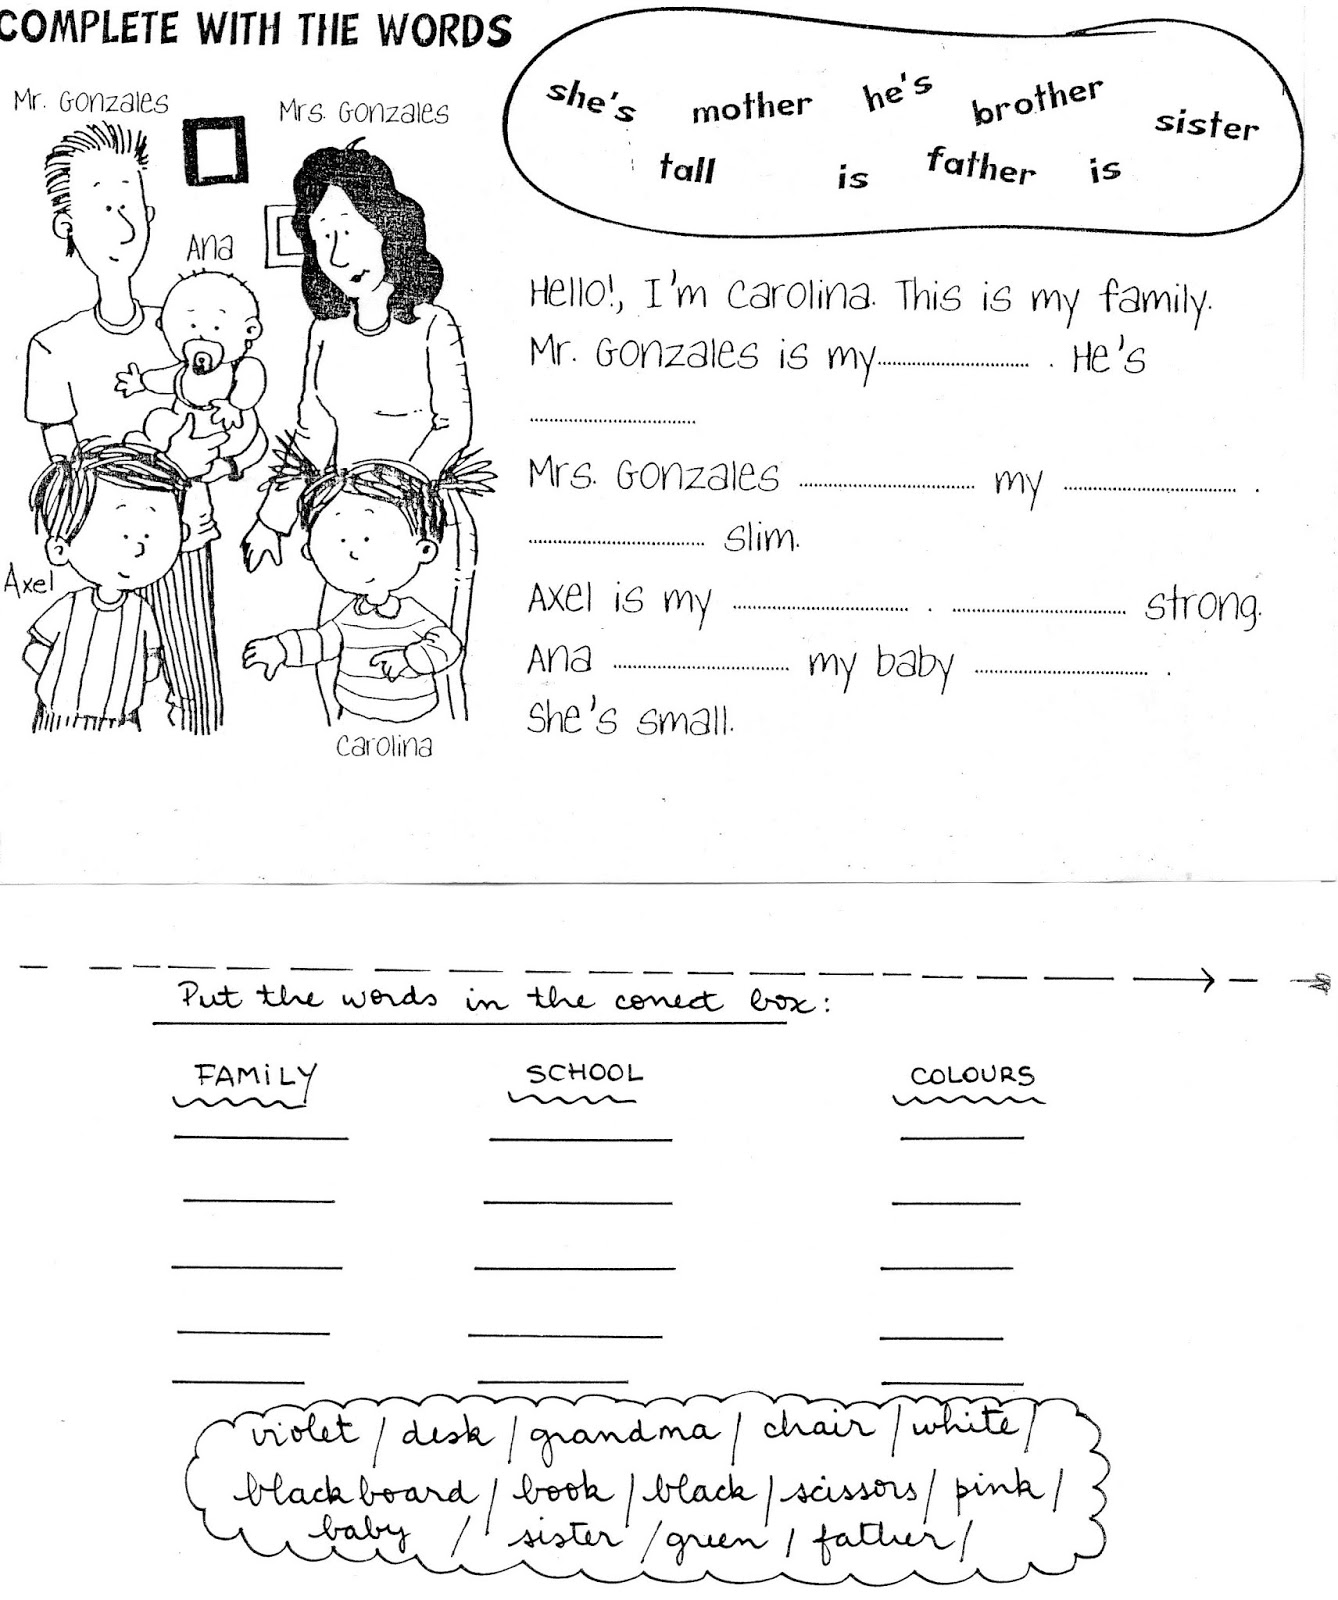 COMPLETE WITH THE WORDS
Mr. Gonzales
Mrs. Gonzales
Ana
Axel
Carolina
she's mother he's brother sister
tall is father is
Hello!, I'm Carolina. This is my family.
Mr. Gonzales is my .................... . He's
....................
Mrs. Gonzales .................... my .................... .
.................... slim.
Axel is my .................... . .................... strong.
Ana .................... my baby .................... .
She's small.
Put the words in the correct box:
FAMILY SCHOOL COLOURS
violet / desk / grandma / chair / white /
blackboard / book / black / scissors / pink /
baby / sister / green / father /